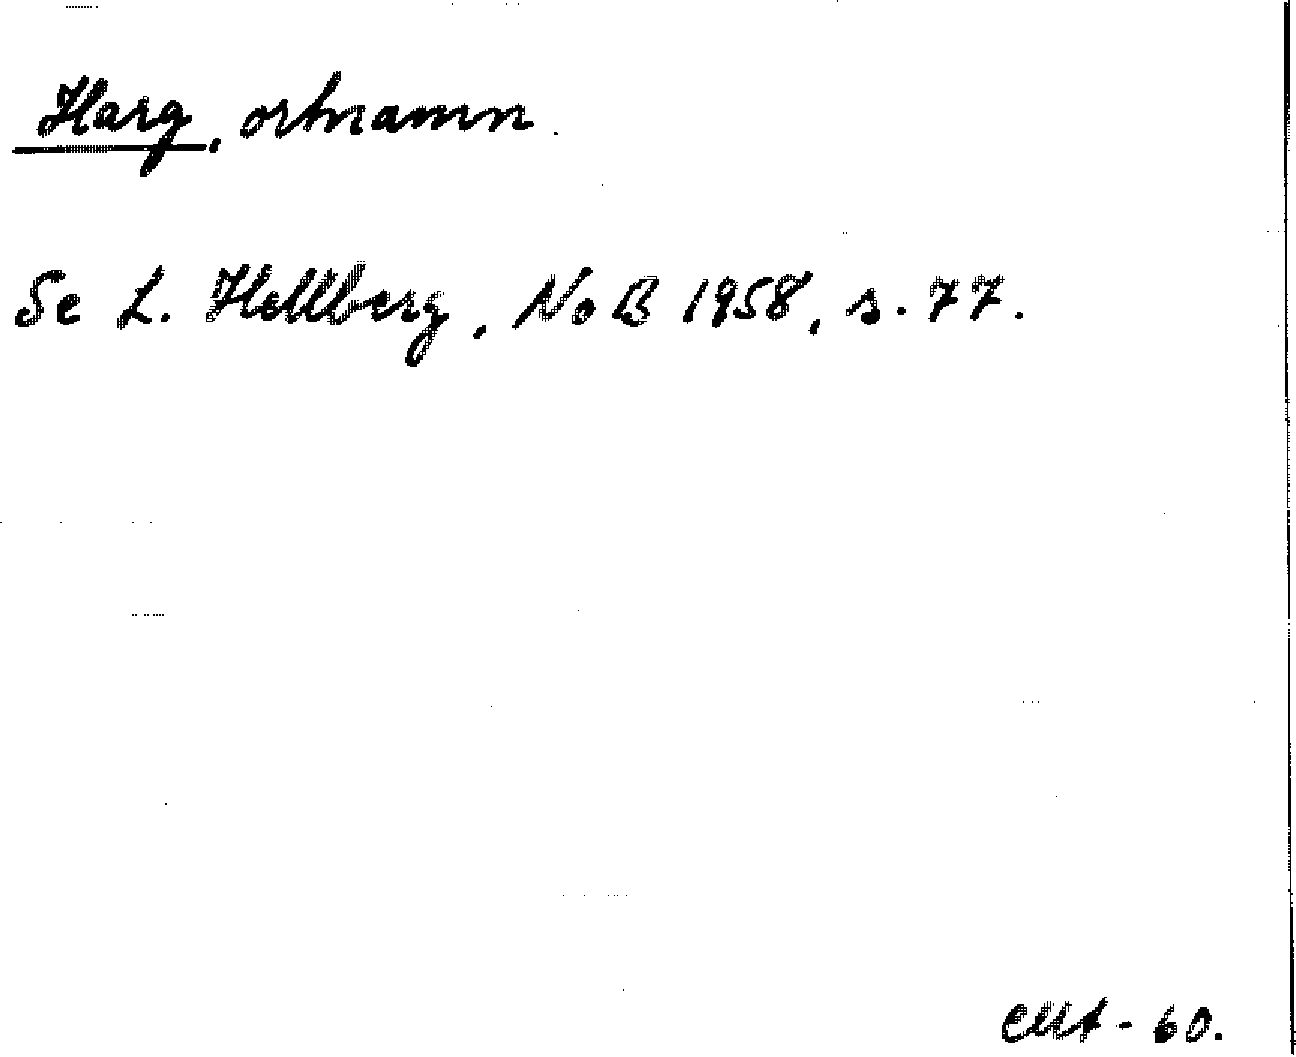 Harg, ortnamn.
Se L. Hellberg, NoB 1958, s. 77.
- 60.